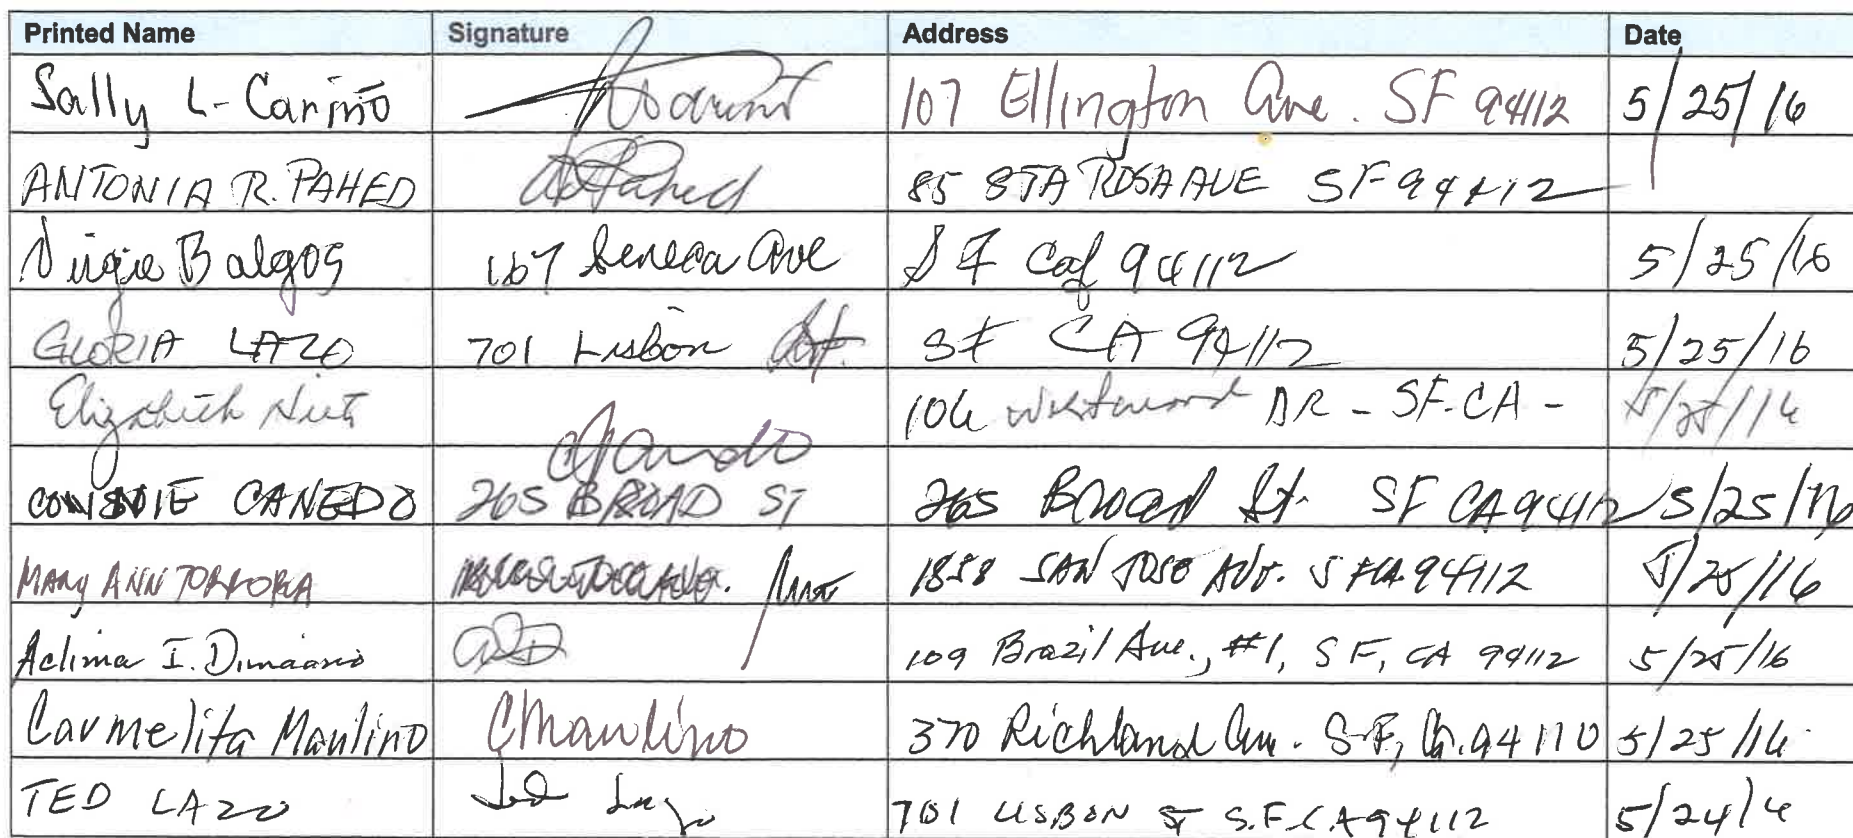 Printed Name Signature Address Date
Sally L- Cariño 107 Ellington Ave. SF 94112 5/25/16
ANTONIA R. PAHED 85 STA ROSA AVE SF 94112
Virgie Balgos 167 Seneca Ave S F Caf 94112 5/25/16
GLORIA LAZO 701 Lisbon St. SF CA 94112 5/25/16
Elizabeth 106 Westwood DR - SF. CA - 5/25/16
CANEDO 265 BROAD ST 265 Broad St. SF CA 94112 5/25/16
MARY ANN 1858 SAN JOSE AVE. SF CA 94112 5/25/16
Aclima I. 109 Brazil Ave., #1, SF, CA 94112 5/25/16
Carmelita Maulino CMaulino 370 Richland Ave. S.F, Ca. 94110 5/25/16
TED LAZO Ted Lazo 701 LISBON ST S.F. CA 94112 5/24/16